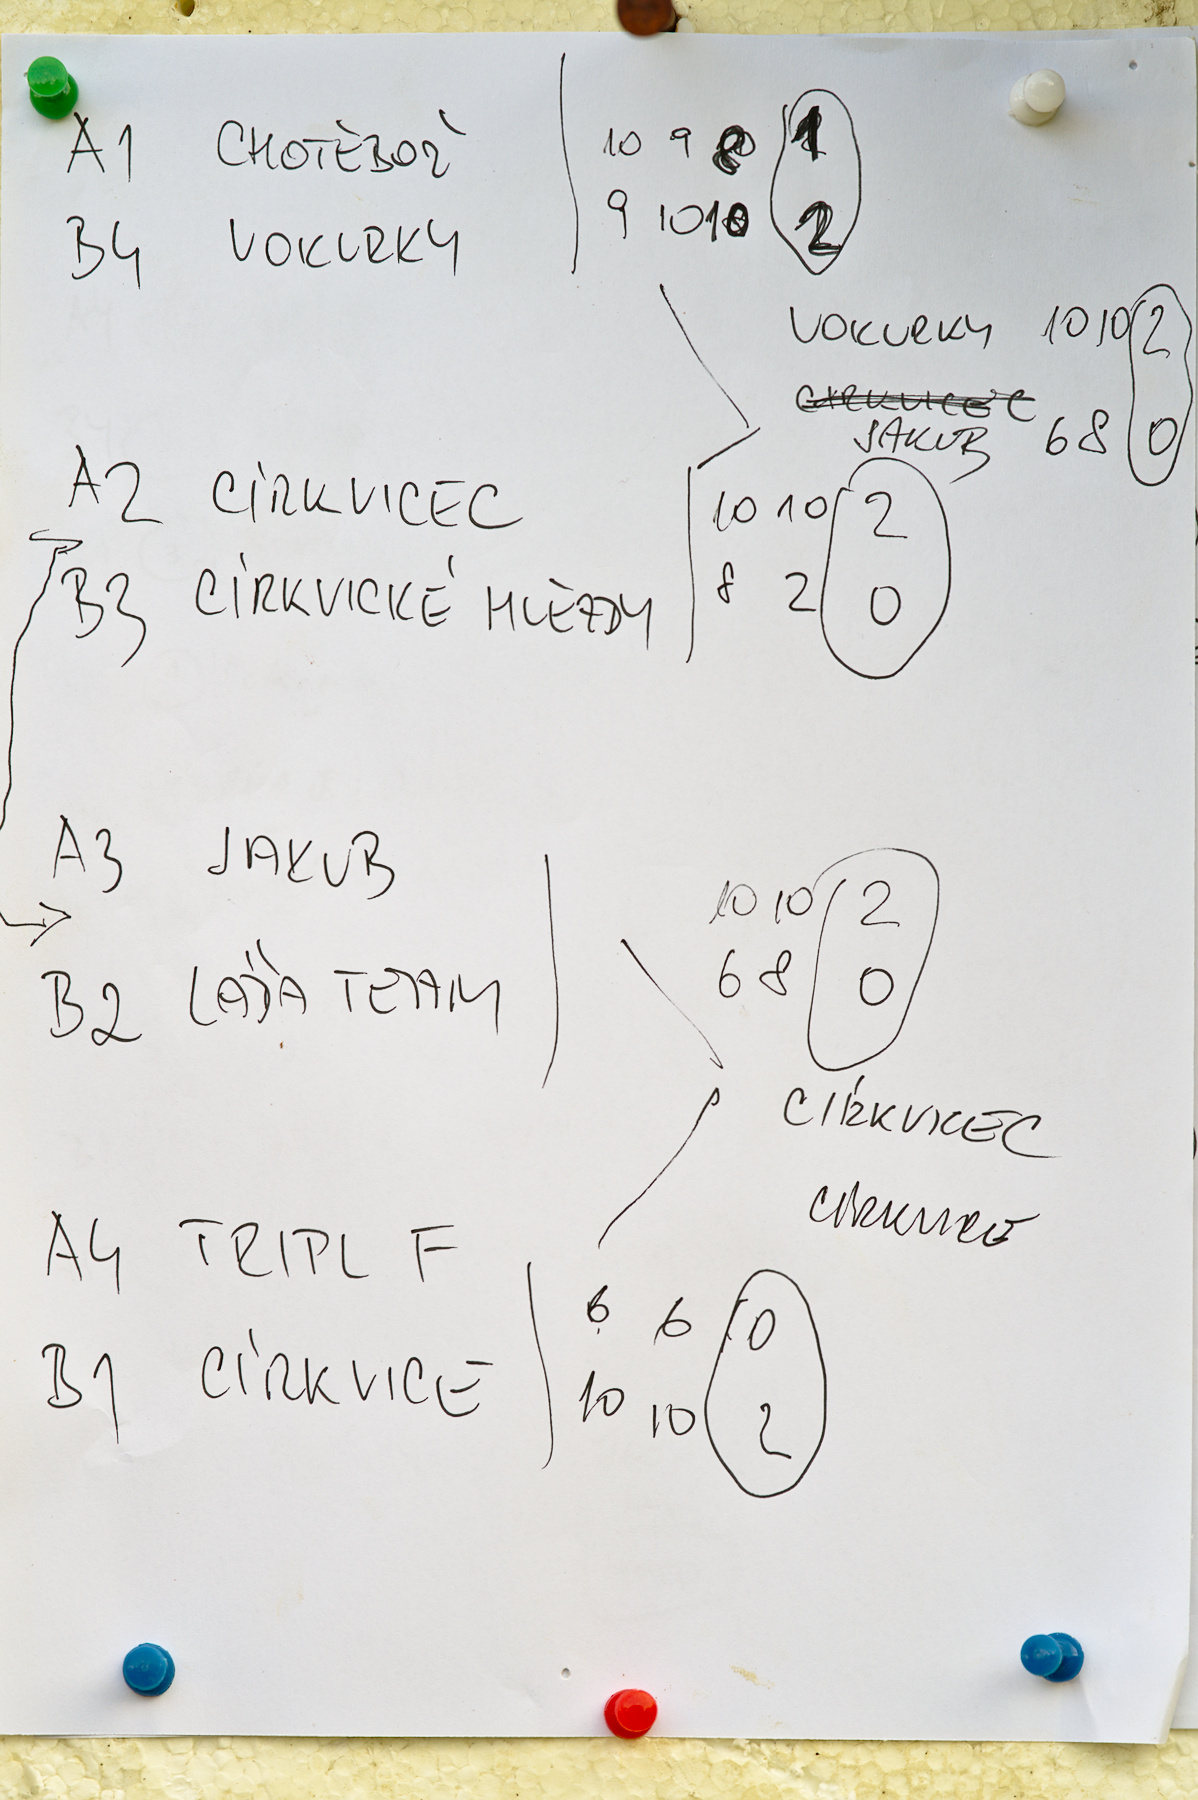 A1 CHOTĚBOŘ 10 9 8 1
B4 VOKURKY 9 10 10 2
VOKURKY 10 10 2
CÍRKVICEC
JAKUB 6 8 0
A2 CÍRKVICEC 10 10 2
B3 CÍRKVICKÉ HVĚZDY 8 2 0
A3 JAKUB 10 10 2
B2 LÁĎA TEAM 6 8 0
CÍRKVICEC
CÍRKVICE
A4 TRIPL F 6 6 0
B1 CÍRKVICE 10 10 2